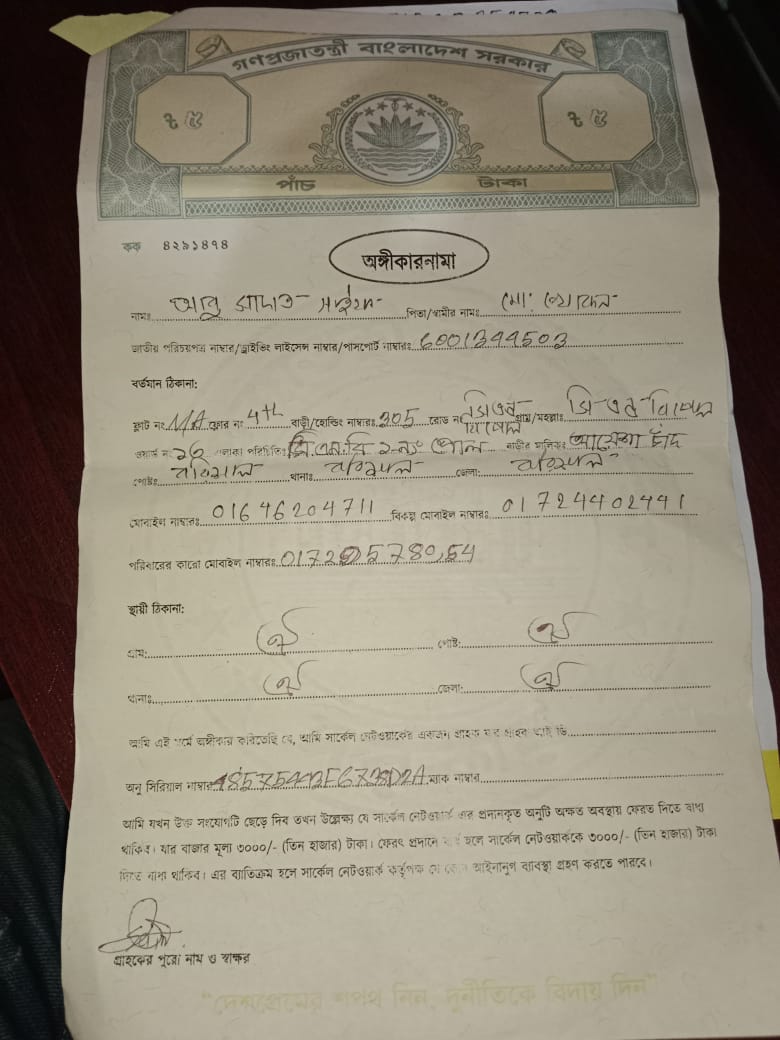 গণপ্রজাতন্ত্রী বাংলাদেশ সরকার
৳ ৫ ৳ ৫
পাঁচ টাকা
কক ৪২৯১৪৭৪
অঙ্গীকারনামা
নামঃ আবু সাদাত সাইফ পিতা/স্বামীর নামঃ মো:
জাতীয় পরিচয়পত্র নাম্বার/ড্রাইভিং লাইসেন্স নাম্বার/পাসপোর্ট নাম্বারঃ 6001344503
বর্তমান ঠিকানা:
ফ্লাট নং NA ফ্লোর নং 4th বাড়ী/হোল্ডিং নাম্বারঃ 305 রোড নং গ্রাম/মহল্লাঃ
ওয়ার্ড নং এলাকা পরিচিতিঃ সি.এন.বি ১নং পোল বাড়ীর মালিকঃ আয়েশা চাঁদ
পোষ্টঃ বরিশাল থানাঃ বরিশাল জেলা: বরিশাল
মোবাইল নাম্বারঃ 01646204711 বিকল্প মোবাইল নাম্বারঃ 01724402441
পরিবারের কারো মোবাইল নাম্বারঃ
স্থায়ী ঠিকানা:
গ্রাম: পোষ্ট:
থানাঃ জেলা:
আমি এই মর্মে অঙ্গীকার করিতেছি যে, আমি সার্কেল নেটওয়ার্কের একজন গ্রাহক যার গ্রাহক আই ডি
অনু সিরিয়াল নাম্বার ম্যাক নাম্বার
আমি যখন উক্ত সংযোগটি ছেড়ে দিব তখন উল্লেক্ষ্য যে সার্কেল নেটওয়ার্ক এর প্রদানকৃত অনুটি অক্ষত অবস্থায় ফেরত দিতে বাধ্য
থাকিব। যার বাজার মূল্য ৩০০০/- (তিন হাজার) টাকা। ফেরৎ প্রদানে ব্যর্থ হলে সার্কেল নেটওয়ার্ককে ৩০০০/- (তিন হাজার) টাকা
দিতে বাধ্য থাকিব। এর ব্যাতিক্রম হলে সার্কেল নেটওয়ার্ক কর্তৃপক্ষ যে কোন আইনানুগ ব্যাবস্থা গ্রহণ করতে পারবে।
গ্রাহকের পুরো নাম ও স্বাক্ষর
"দেশপ্রেমের শপথ নিন, দুর্নীতিকে বিদায় দিন"